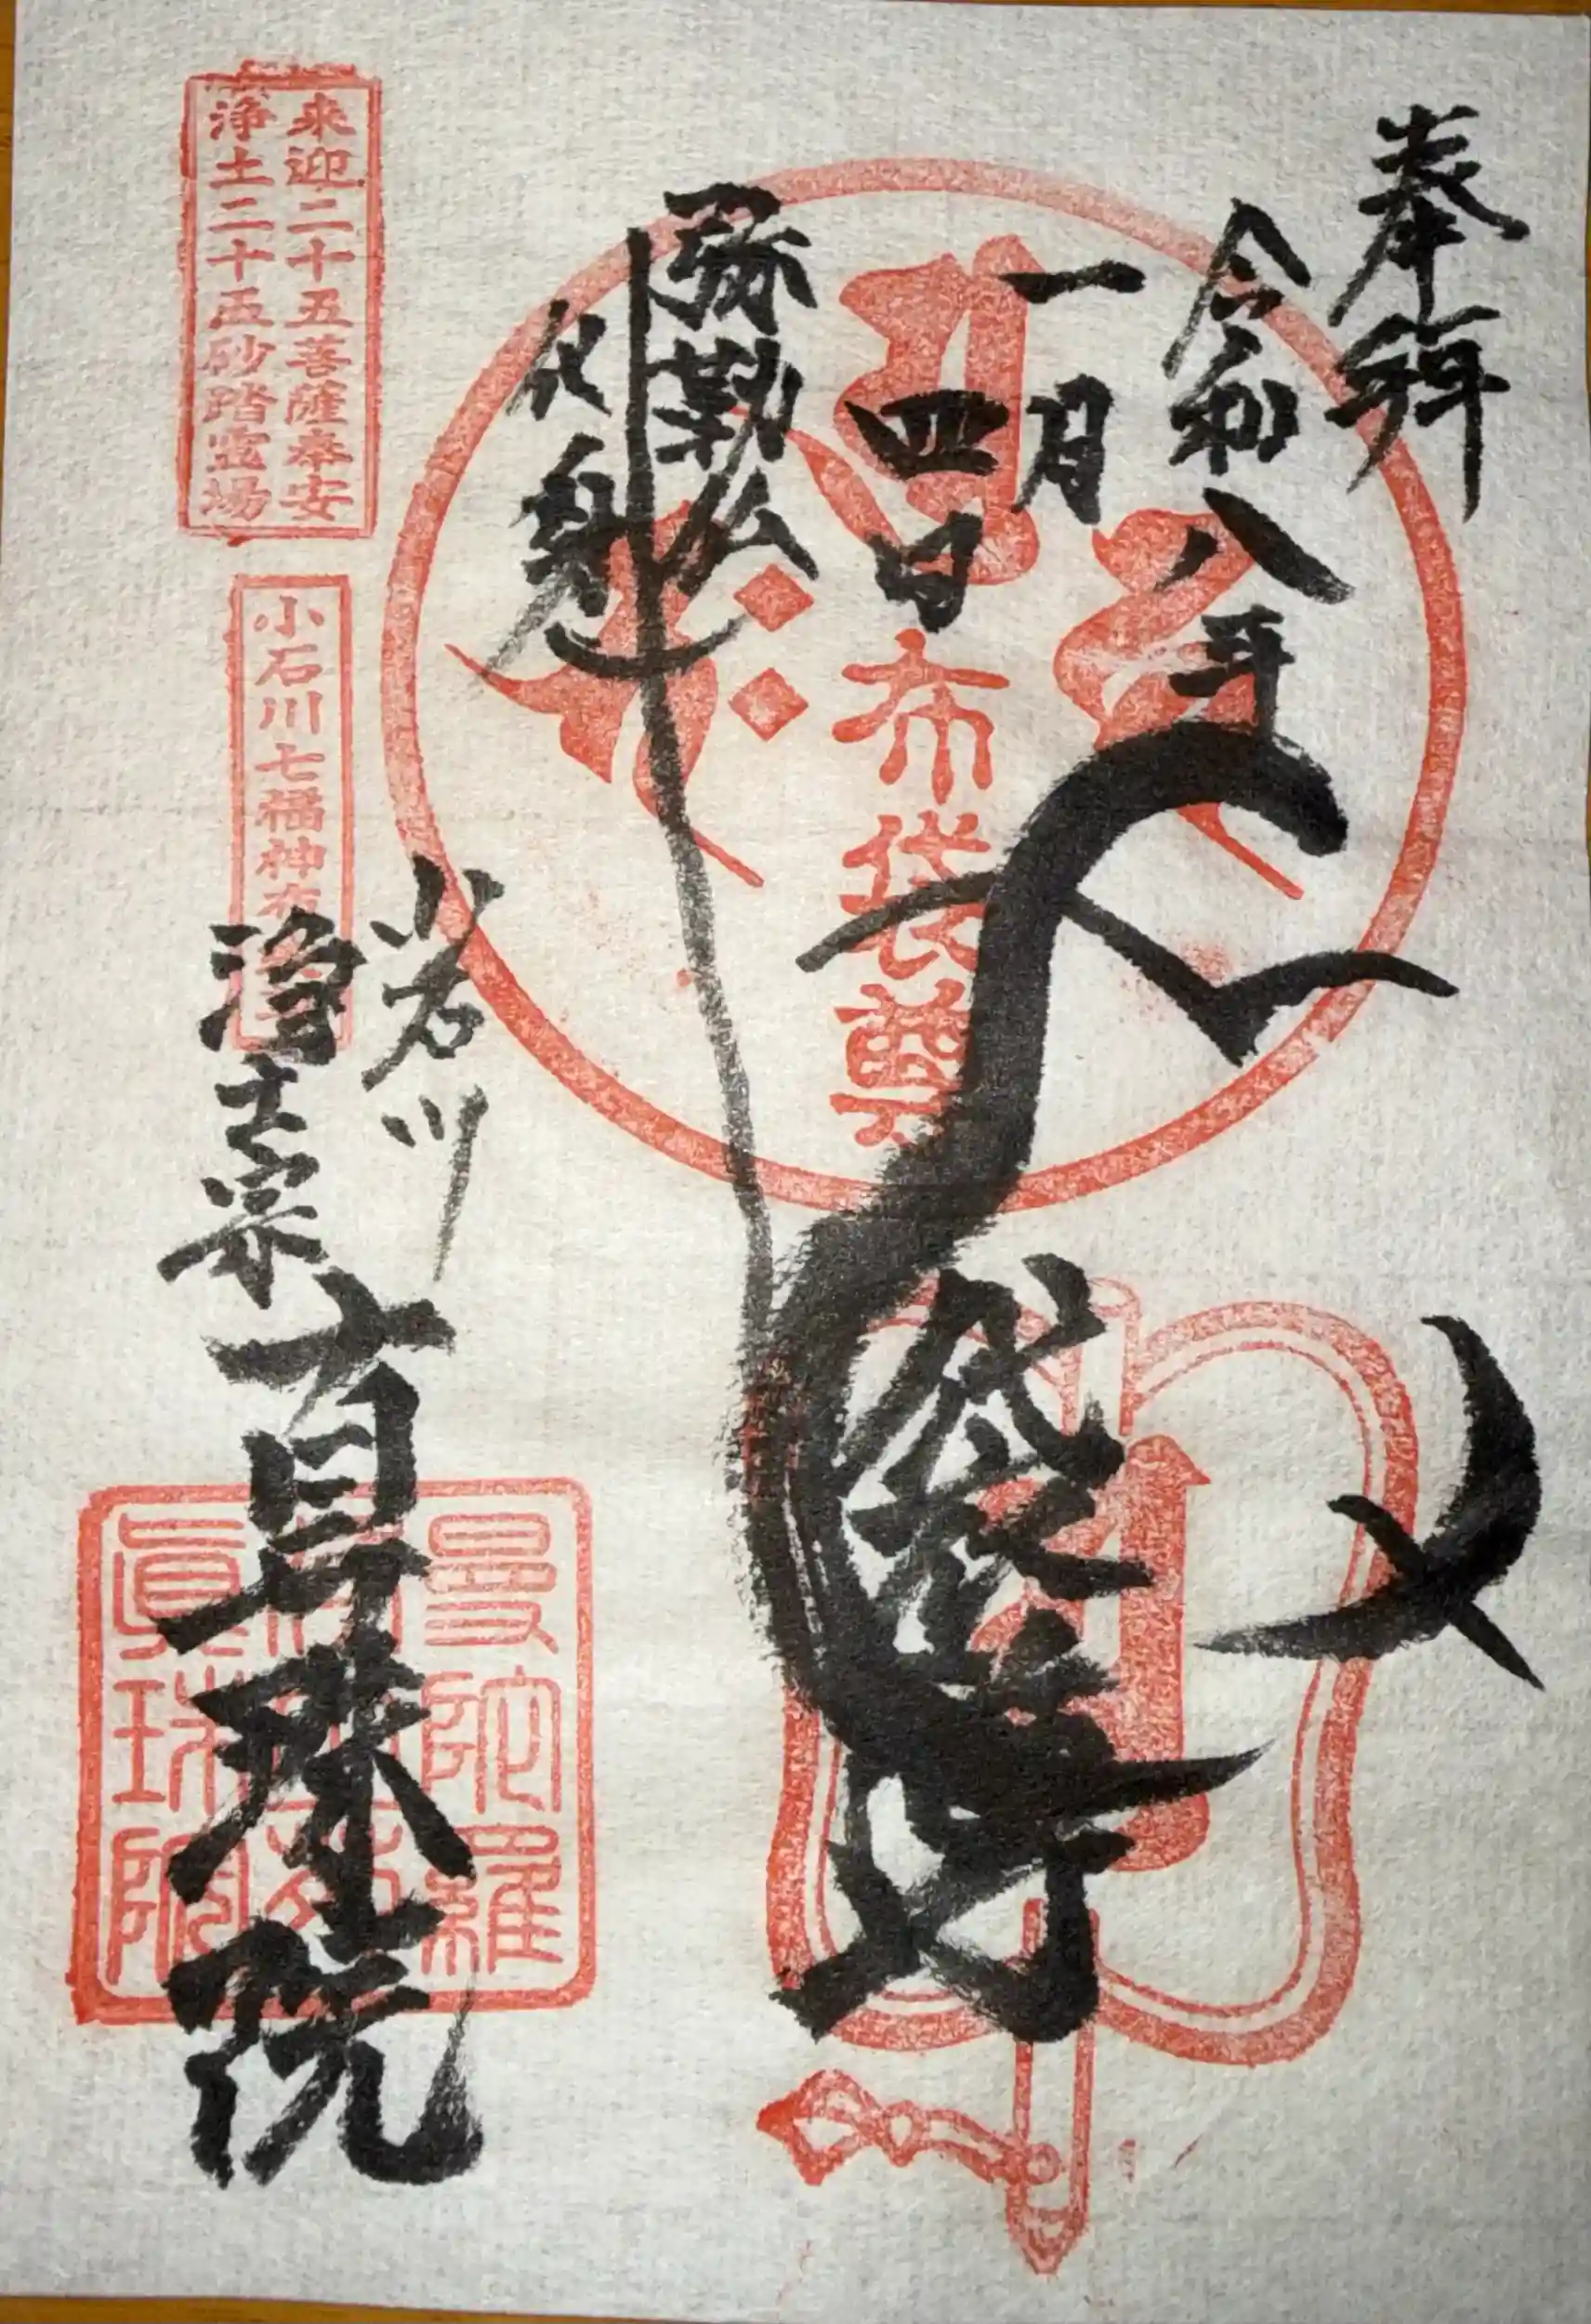 奉拝
令和八年
一月
四日
布袋尊
弥勒仏
化身
布袋尊
小石川
浄土宗
真珠院
来迎二十五菩薩奉安
浄土二十五砂踏霊場
小石川七福神布
曼陀羅
眞珠院